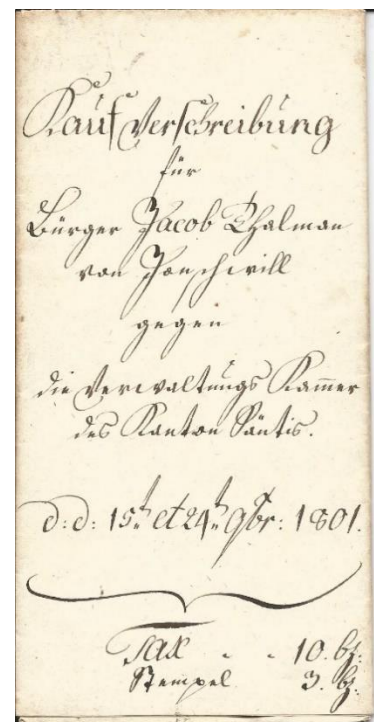 Kauf Verschreibung
für
Bürger Jacob Thalman
von Jonschwill
gegen
die Verwaltungs Kam̅er
des Kanton Säntis.
d: d: 15t et 24t 9br: 1801.
Tax - - 10. bz:
Stempel 3. bz: